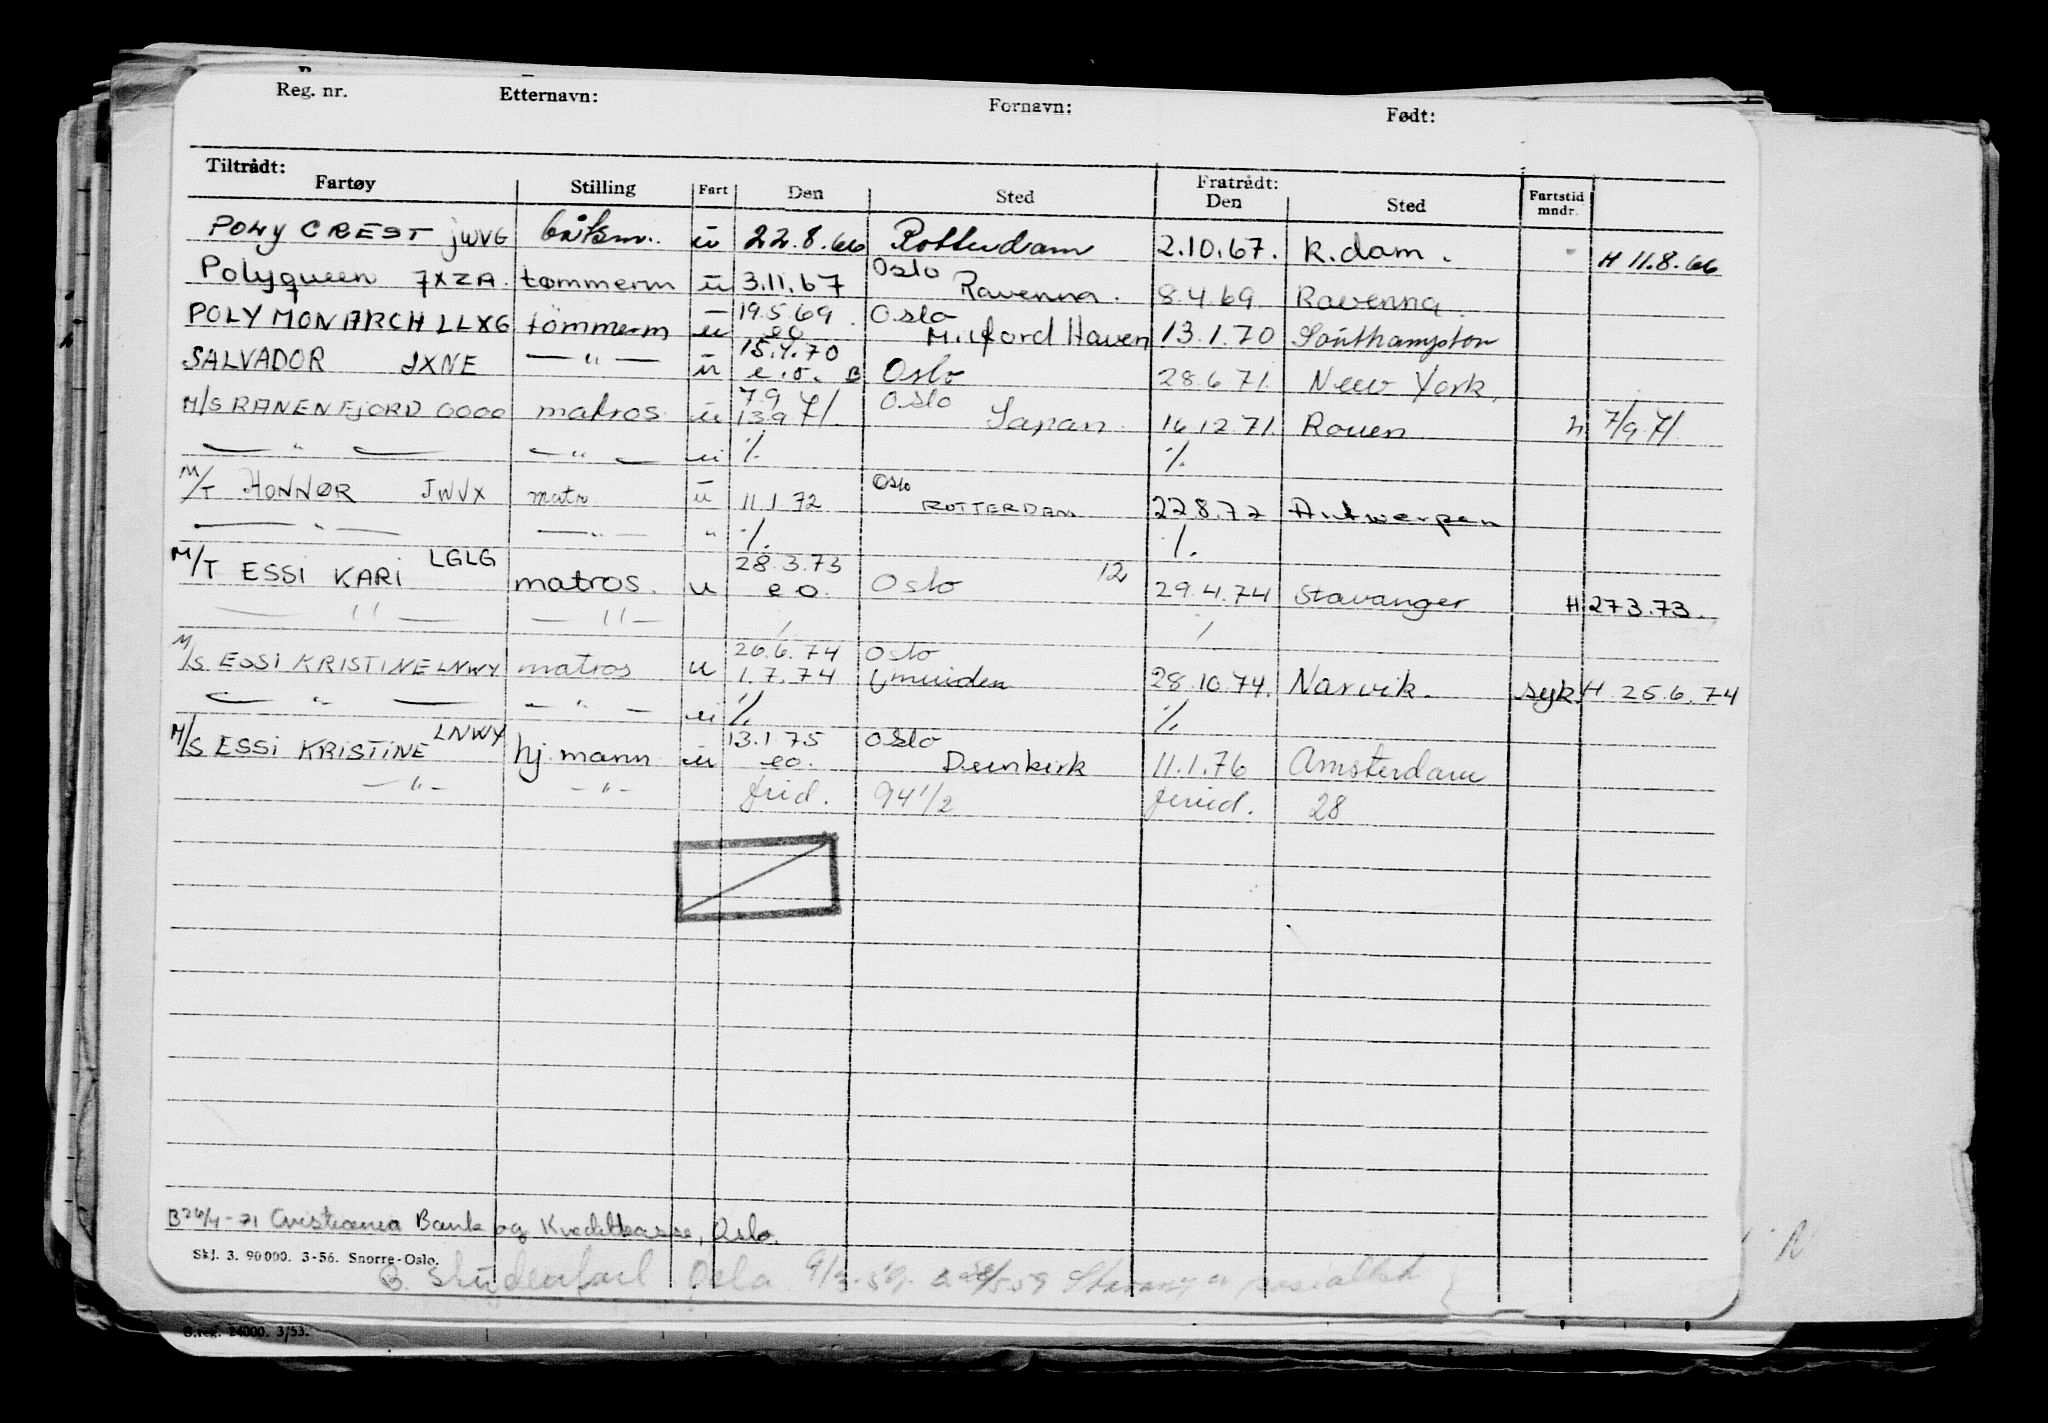 Reg. nr. Etternavn: Fornavn: Født:
Tiltrådt: Fratrådt:
Fartøy Stilling Fart Den Sted Den Sted Fartstid mndr.
POLY CREST JWVG båtsm. u 22.8.66 Rotterdam 2.10.67. R.dam. H 11.8.66
Oslo
Polyqueen JXZA. tømmerm u 3.11.67 Ravenna. 8.4.69 Ravenna.
19.5.69 Oslo
POLY MONARCH LLXG tömmerm u eo Milford Haven 13.1.70 Southampton
15.4.70
SALVADOR JXNE — " — u e.o. B Oslo 28.6.71. New York.
7.9 Oslo
M/S RANENFJORD OOOO matros u 13.9.71. Japan. 16.12.71. Rouen h 7/9.71.
— " — — " — u ⁒ ⁒
Oslo
M/T HONNØR JWVX matr u 11.1.72 ROTTERDAM 22.8.72 Antwerpen
— " — — " — " ⁒ ⁒
LGLG 28.3.73 12
M/T ESSI KARI matros. u eo. Oslo 29.4.74 Stavanger H 27.3.73.
— " — — " — / /
26.6.74 Oslo
M/S ESSI KRISTINE LNWY matros u 1.7.74 Ijmuiden 28.10.74. Narvik. syk. H. 25.6.74
— " — — " — u ⁒ ⁒
LNWY 13.1.75 Oslo
M/S ESSI KRISTINE hj.mann u eo. Dunkirk 11.1.76 Amsterdam
— " — — " — 94 1/2 28
B 26/4-71 Cristiania Bank og Kreditkasse, Oslo.
Skj. 3. 90000. 3-56. Snorre-Oslo.
B. Oslo
S.reg. 24000. 3/53.